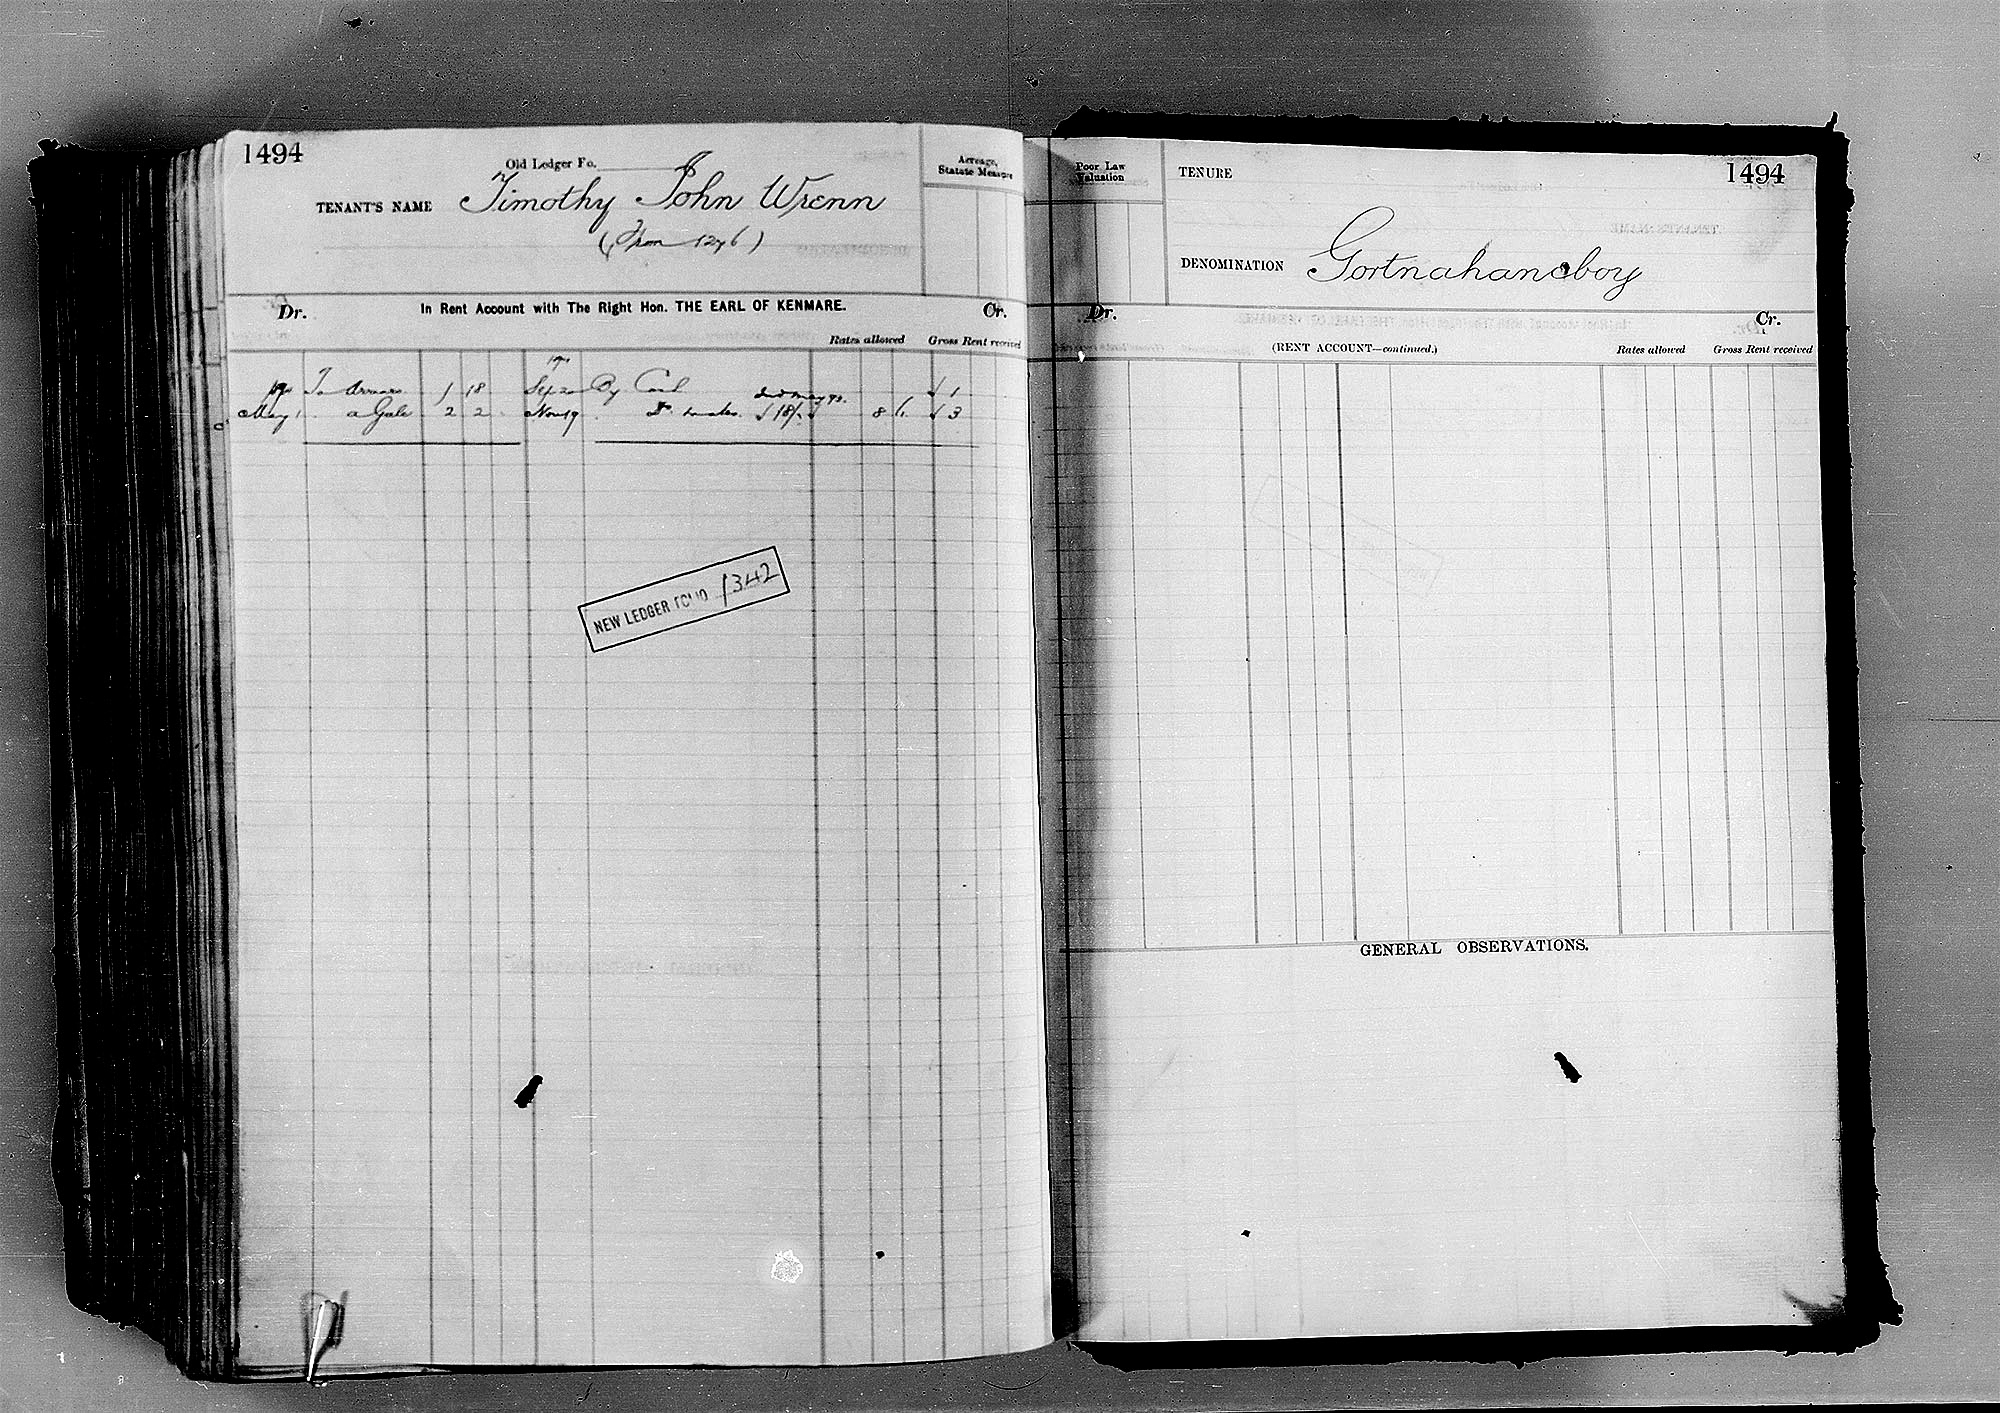 1494
Old Ledger Fo.
TENANT'S NAME Timothy John Wrenn
(From 1276)
Acreage,
Statute Measure
Dr. In Rent Account with The Right Hon. THE EARL OF KENMARE. Cr.
Rates allowed Gross Rent received
To Arrears 1 18 Sep 20 By Cash √ 1
May 1 a Gale 2 2 Nov 19 Do √ 18/. 8 /. √ 3
NEW LEDGER FOLIO 1342
Poor Law
Valuation
TENURE
1494
DENOMINATION Gortnahaneboy
Dr. Cr.
(RENT ACCOUNT—continued.) Rates allowed Gross Rent received
GENERAL OBSERVATIONS.